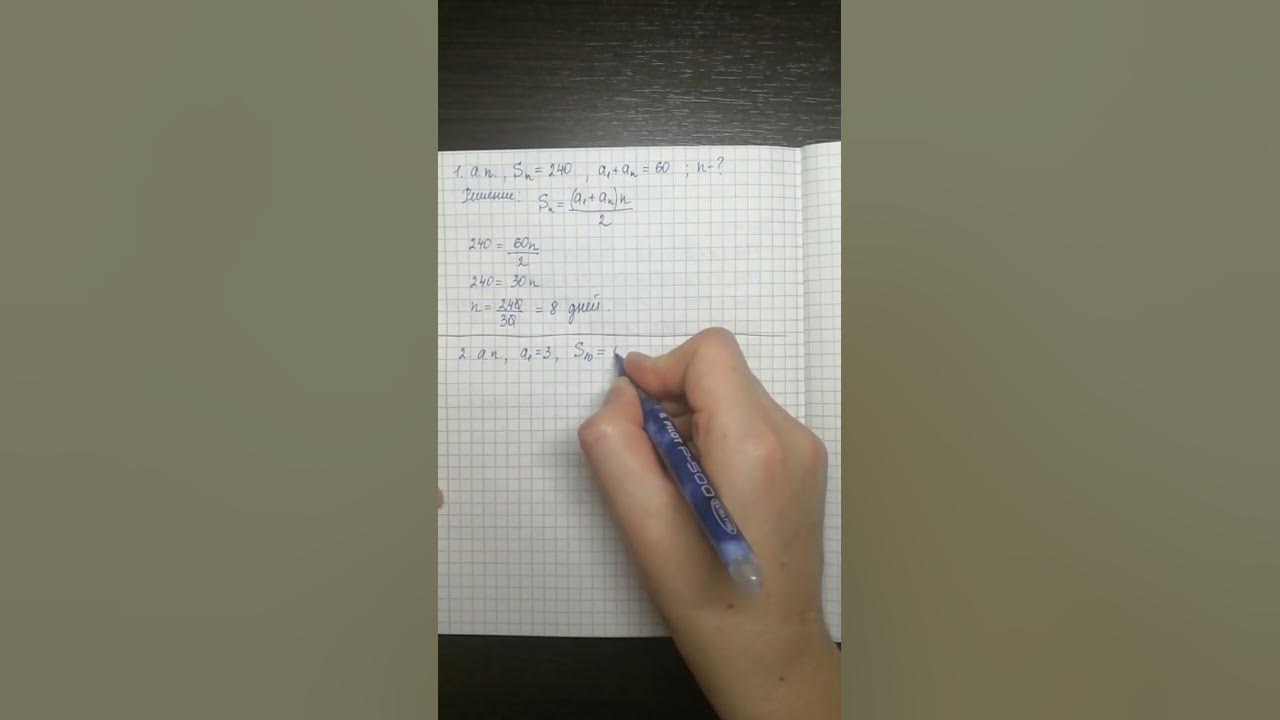 1. а.п., Sn = 240, a₁ + an = 60 ; n - ?
Решение: Sn = (a₁ + an)n / 2
240 = 60n / 2
240 = 30n
n = 240 / 30 = 8 дней.
2. а.п., a₁ = 3, S₁₀ =
PILOT P-500